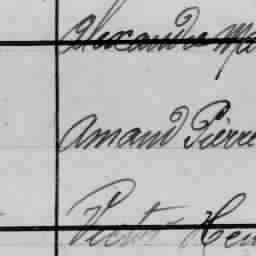 Alexandre Ma
Amand Pierre
Victor Hen